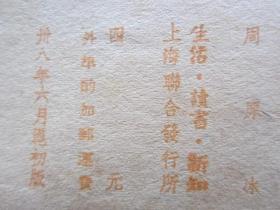 周原冰
生活·讀書·新知
上海聯合發行所
四元
外埠酌加郵運費
卅八年六月滬初版